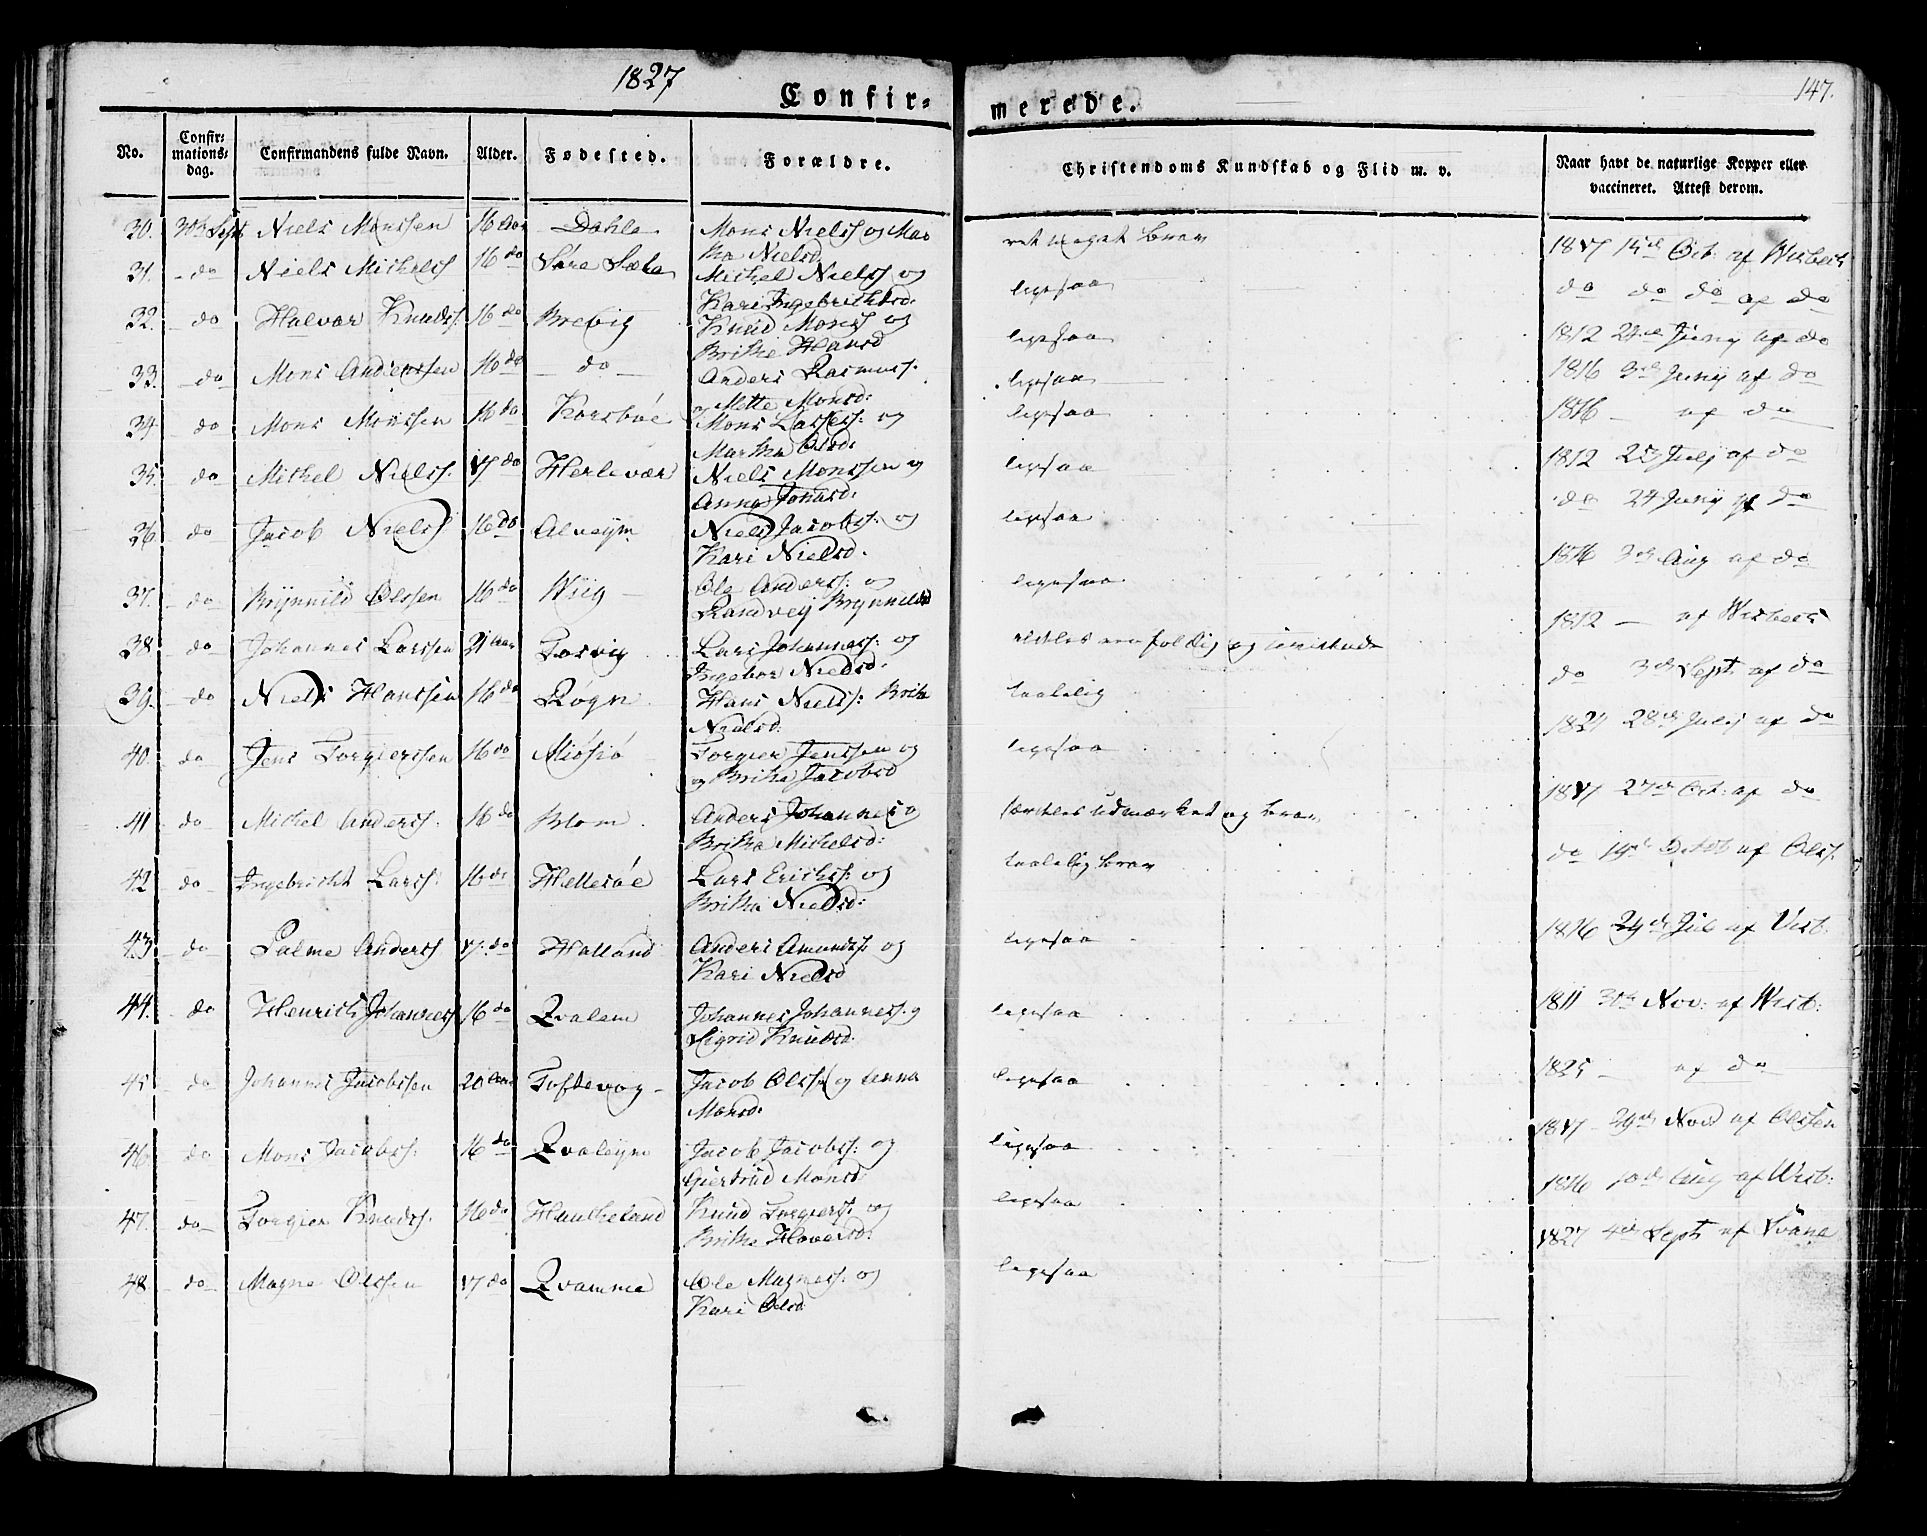 1827
147.
Confir-
merede.
No.
Confir-
mations-
dag.
Confirmandens fulde Navn.
Alder.
Fødested.
Forældre.
Christendoms Kundskab og Flid m. v.
Naar havt de naturlige Kopper eller
vaccineret. Attest derom.
30. 30te Sept Niels Monssen 16 Aar Dahle Mons Nielss og Mar
tha Nielsd. meget brav 1817 14de Oct: af Wisbech
31. do Niels Michelss 16 do Michel Nielss og
Kari Ingebrichtsd: ligesaa do do do af do
32. do Halvor Knudss. 16 do Brevig Knud Monss og
Brithe Hansd ligesaa 1812 24de Juny af do
33. do Mons Anderssen 16 do do Anders Rasmuss.
og Mette Monsd: ligesaa 1816 3de Juny af do
34. do Mons Monssen 16 do Korsbøe Mons Lasses: og
Martha Olsd: ligesaa 1816 af do
35. do Michel Nielss. 17 do Herlevær Niels Monssen og
Anna Johnsd: ligesaa 1812 July af do
36 do Jacob Nielss 16 do Alveim Niels Jacobss: og
Kari Nielsd. ligesaa do 24 Juny af do
37. do Brynnild Olssen 16 do Wiig Ole Anderss: og
Randvei Brynnildsd ligesaa 1816 3de Aug af do
38 do Johannes Larssen 21 Aar Torvig Lars Johanness: og
Ingebor Nielsd: og 1812 af Wisbech
39. do Niels Hanssen 16 do Røgn Hans Nielss: Brithe
Nielsd: taalelig do 3de Sept af do
40. do Jens Torgierssen 16 do Miøsiø Torgier Jenssen og
og Britha Jacobsd ligesaa 1824 28de July af do
41 do Michel Anderss. 16 do Blom Anders Johannes og
Britha Michelsd: udmærket og brav 1817 27de Oct: af do
42 do Ingebricht Larss: 16 do Hellesøe Lars Erichs: og
Britha Nielsd: taalelig brav do 14de af Olss.
43 do Palme Anderss 17 do Halland Anders Amundss og
Kari Nielsd ligesaa 1816 29de Jul af Wisb:
44. do Henrich Johanness 16 do Qvalem Johannes Johanness. og
Sigrid Knudsd. ligesaa 1811 Nov: af Wisb:
45 do Johannes Jacobssen 20 Aar Toftevog Jacob Olssen og Anna
Monsd: ligesaa 1825 af do
46 do Mons Jacobss: 16 do Qvaleim Jacob Jacobss: og
Giertrud Monsd: ligesaa 1817 29de Novb af Olssen
47. do Torgier Knudss. 16 do Haukeland Knud Torgierss og
Brithe Haversd: ligesaa 1816 10de Aug af Wisb:
48 do Magne Olssen 17 do Qvamme Ole Magness: og
Kari Olsd ligesaa 1827 4de Sept af Svane